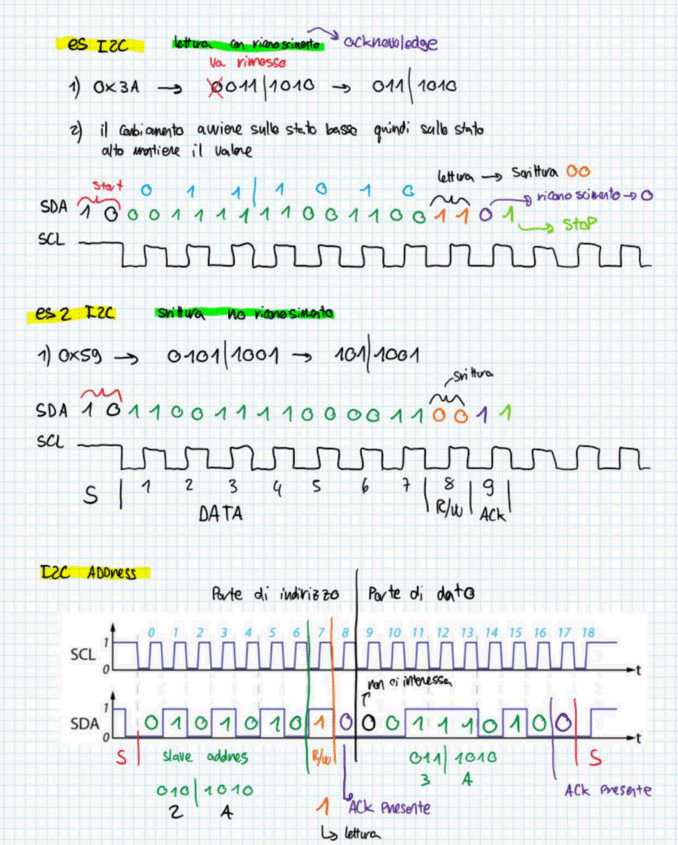 es I2C lettura con riconoscimento → acknowledge
va rimosso
1) 0x3A → 0011|1010 → 011|1010
2) il cambiamento avviene sullo stato basso quindi sullo stato
alto mantiene il valore
lettura → scrittura 00
start 0 1 1 | 1 0 1 0 riconoscimento → 0
SDA 1 0 0 0 1 1 1 1 1 1 0 0 1 1 0 0 1 1 0 1 → STOP
SCL
es 2 I2C scrittura no riconoscimento
1) 0x59 → 0101|1001 → 101|1001
scrittura
SDA 1 0 1 1 0 0 1 1 1 1 0 0 0 0 1 1 0 0 1 1
SCL
S | 1 2 3 4 5 6 7 | 8 | 9 |
DATA R/W ACK
I2C ADDRESS
Parte di indirizzo Parte di dato
0 1 2 3 4 5 6 7 8 9 10 11 12 13 14 15 16 17 18
1
SCL
0 t
non ci interessa
1
SDA 0 1 0 1 0 1 0 1 0 0 0 1 1 1 0 1 0 0
0 t
S slave addres R/W 011|1010 S
3 A
010|1010 ACK presente
2 A 1 ACK presente
↳ lettura